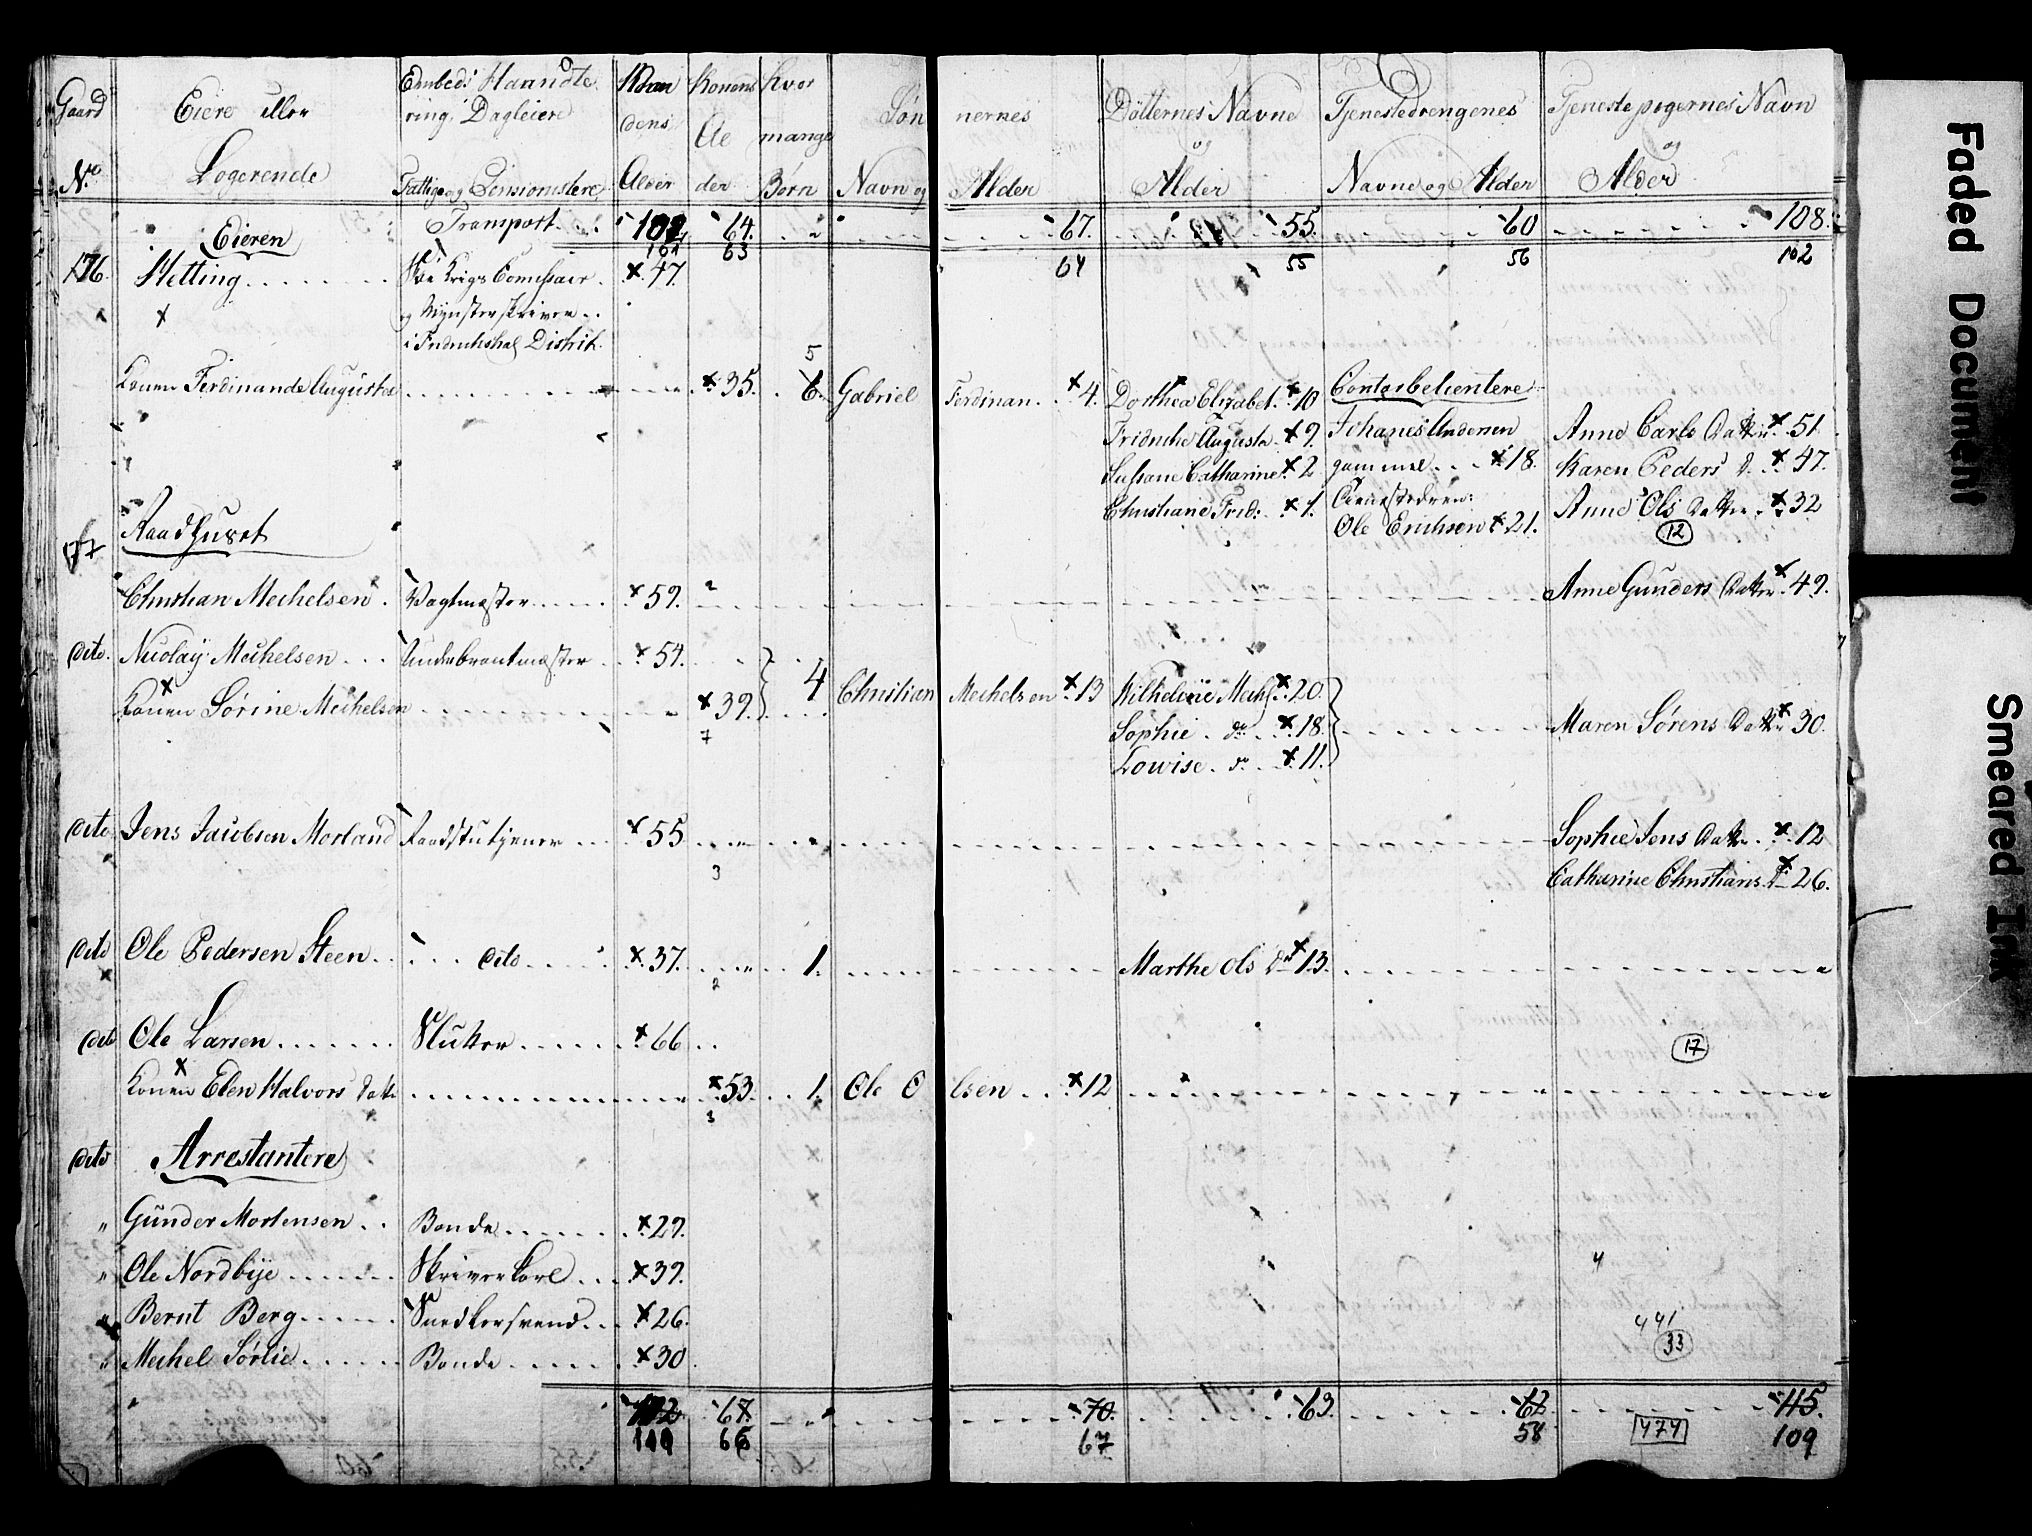 Gaard No
Eiere eller Logerende
Embed: Haandtering, Dagleiere Fattige og Pensionistere
Mandens Alder
Konens Alder
hvor mange Børn
Sønnernes Navn og Alder
Døtternes Navne og Alder
Tjenestedrengenes Navne og Alder
Tjenestepigernes Navn og Alder
Transport 64. 67. 55. 60 108.
63 64 55 56 102
Eieren
176. Hetting Krigs Comissair 47.
og Mynsterskriver
i Fridrichshal District
5
Konen Ferdinande Augusta 35. 6. Gabriel Ferdinan 4. Dorthea Elizabet 10 Contorbetientere
Fridriche Augusta 9. Johanes Andersen Anne Carls Datter 51.
Sussane Catharine 2 gammel 18. Karen Peders D. 47.
Christiane Frid: 1. Tienestedren: Anne Ols Datter 32
Ole Erichsen 21. 12
177 Raadhuset
Christian Michelsen Vagtmester 59. Anne Gunders Datter 49.
dito. Nicolay Michelsen Underbrantmester 54.
Konen Sørine Michelsen 39. 4 Christian Michelsen 13 Wilhelmine Mich 20.
7 Sophie do 18. Maren Sørens Datter 30.
Lowise do 11.
dito Jens Jacobsen Morland Raadstutjener 55 Sophie Jens Datter 12
3 Catharine Christians D 26.
dito Ole Pedersen Steen dito 37. 1. Marthe Ols D 13.
2
dito Ole Larsen Slutter 66
17
Konen Elen Halvors Datt 53. 1. Ole Olsen 12
3
dito Arrestantere
" Gunder Mortensen Bonde 29.
" Ole Nordbye Skriverkarl 39.
" Bernt Berg Snedkersvend 26.
441
" Michel Sørlie Bonde 30
33
112 67. 70. 63. 62 115.
110 66 67 58 474 109
Faded Document
Smeared Ink